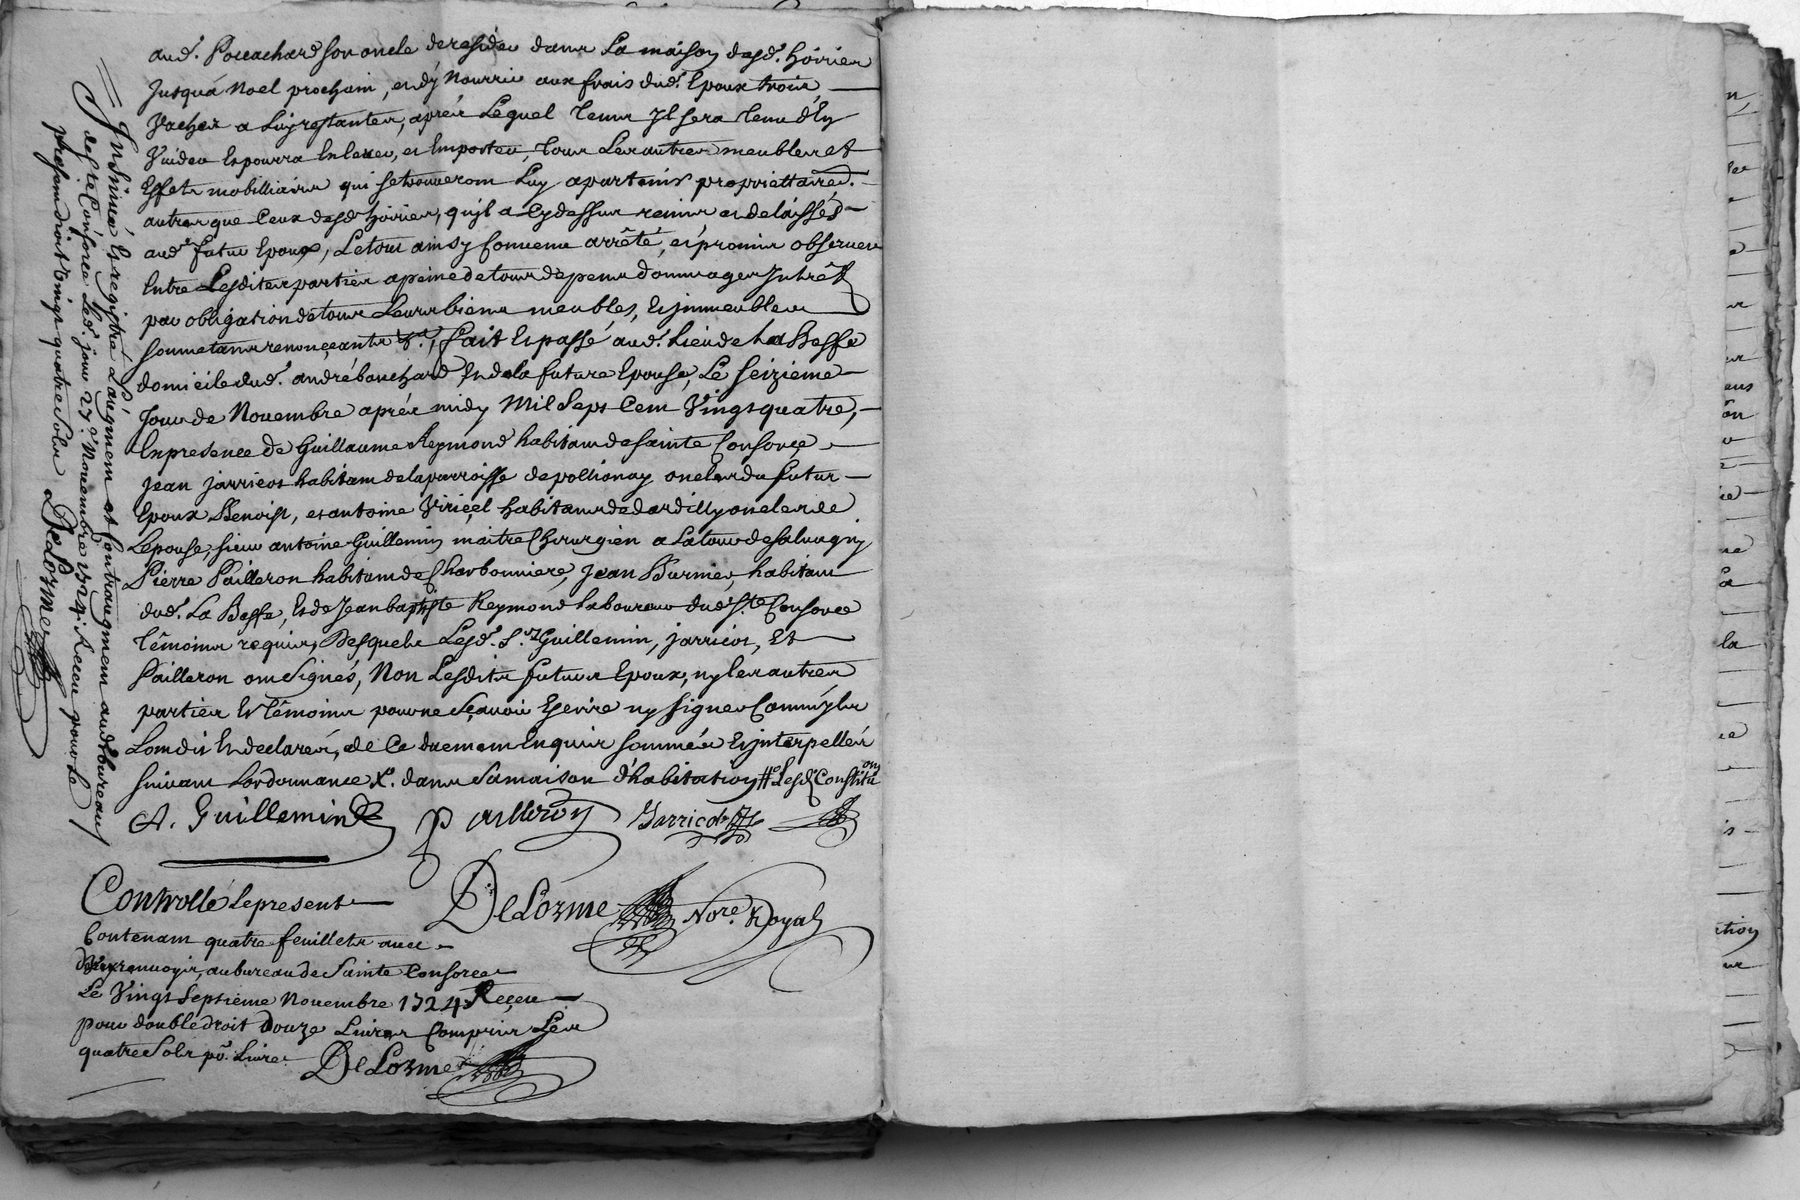 aud. Pouachard son oncle de resider dans La maison desd. hoiries
Jusqu'á Noel prochain, et dÿ Nourrir aux frais dud. Epoux trois
Vaches a Luy restantes, aprés Lequel tems Jl sera tenu d'En
Vuider Et pourra Enlever, et Emporter, tous Les autres meubles et
Effets mobilliaires qui se trouveront Luy apartenir proprietaired.
autres que Ceux desd. hoiries, qu'jl a Cydessus remis et delaissés
aud. futur Epoux, Le tout ainsy Convenu arrêté, et promis observer
Entre Lesdites parties a peine de tous dépens dommages Intrêts
par obligation de tous Leurs biens meubles, Et jmmeubles
soumetans renonçants &a., fait Et passé aud. Lieu de La Beffe
domicile dud. andré bouchard Et de la future Epouse, Le seizieme
Jour de Novembre aprés midy Mil Sept Cent Vingt quatre,
En presence de Guillaume Reymond habitant de sainte Consorçe
jean jarricot habitant de la parroisse de pollionay oncles du futur
Epoux Benoist, et antoine Viriçel habitants de dardilly oncles de
Lepouse, sieur antoine Guillemin maitre Chirurgien a La tour de salvagny
Pierre Pailleron habitant de Charbonniere, Jean Burnier, habitant
dud. La Beffe, Et de Jean baptiste Reymond Laboureur dud. Ste Consorce
têmoins requis, Desquels Lesd. Sr. Guillemin, jarricot, Et
Pailleron ont signés, Non Lesdits futurs Epoux, ny les autres
parties Et têmoins pour ne sçavoir Escrire ny signer Comm'jls
L'ont dit Et declarés, de Ce duement Enquis sommés Et jnterpellés
suivant Lordonnance X. dans sa maison d'habitation # Lesd. Constitu
on
A. Guillemin Pailleron Jarricot
DeLorme Nore. Royal
Controllé le present
Contenant quatre feuillets avec
deux renvoyir, au bureau de Sainte Consorce
Le Vingt Septiéme Novembre 1724 Reçeu
pour double droit Douze Livres Compris Les
quatre Sols pr. Livre DeLorme
Jnsinué Et registré L'augment et Contraugment aud. bureau
de Ste Consorce Led. jour 27e. Novembre 1724 Receu pour Le
present droit vingt quatre Sols DeLorme